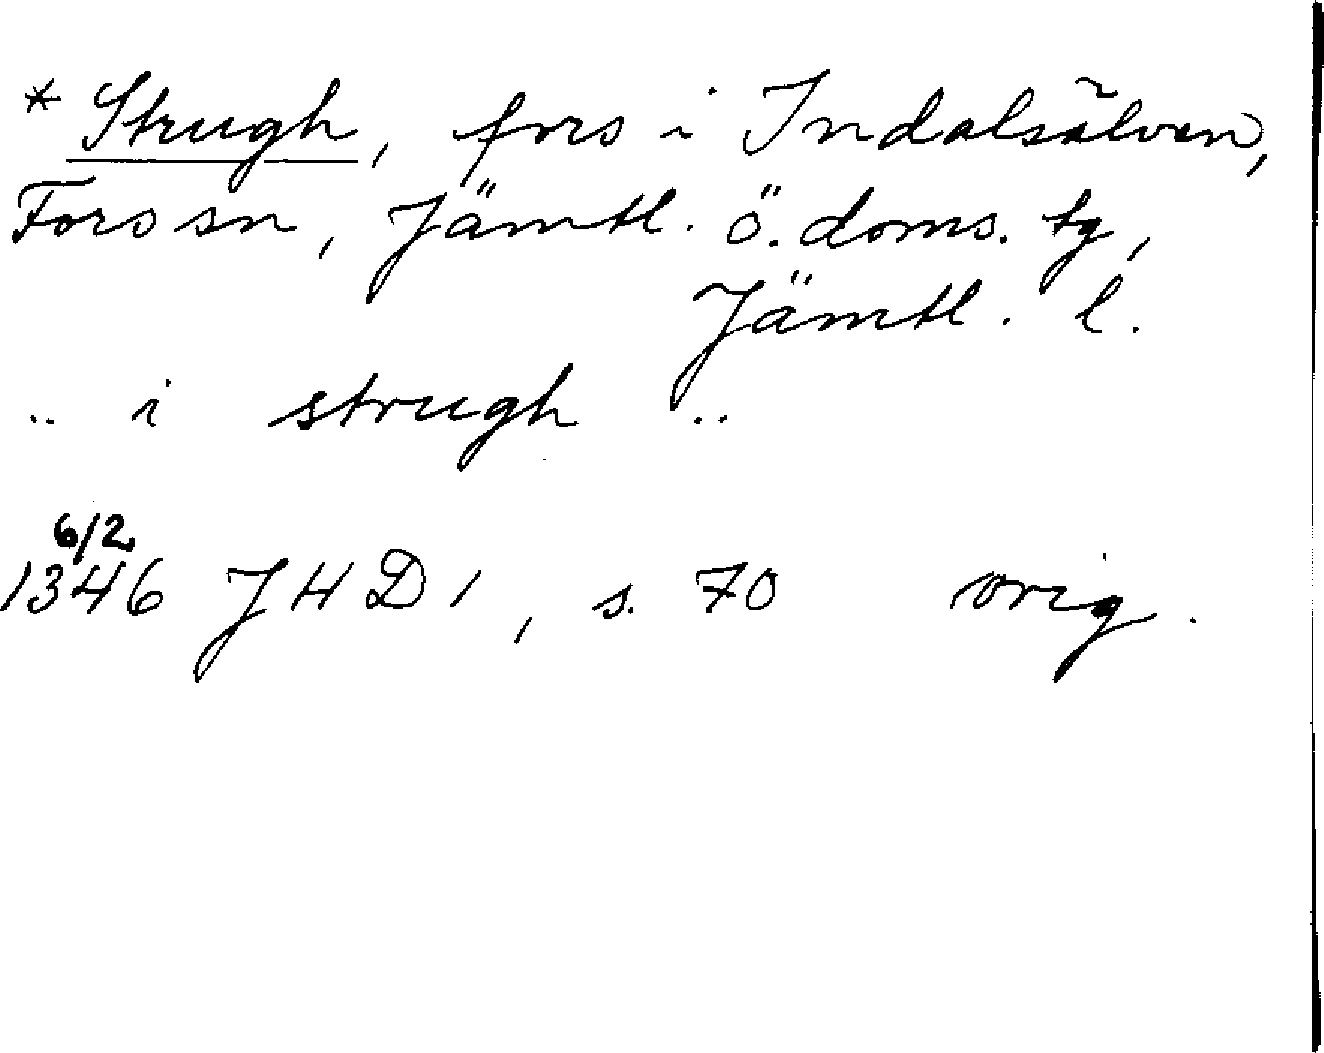 * Strugh, fors i Indalsälven,
Fors sn, Jämtl. ö. doms. tg,
Jämtl. l.
.. i strugh ..
6/2
1346 JHD 1, s. 70 orig.